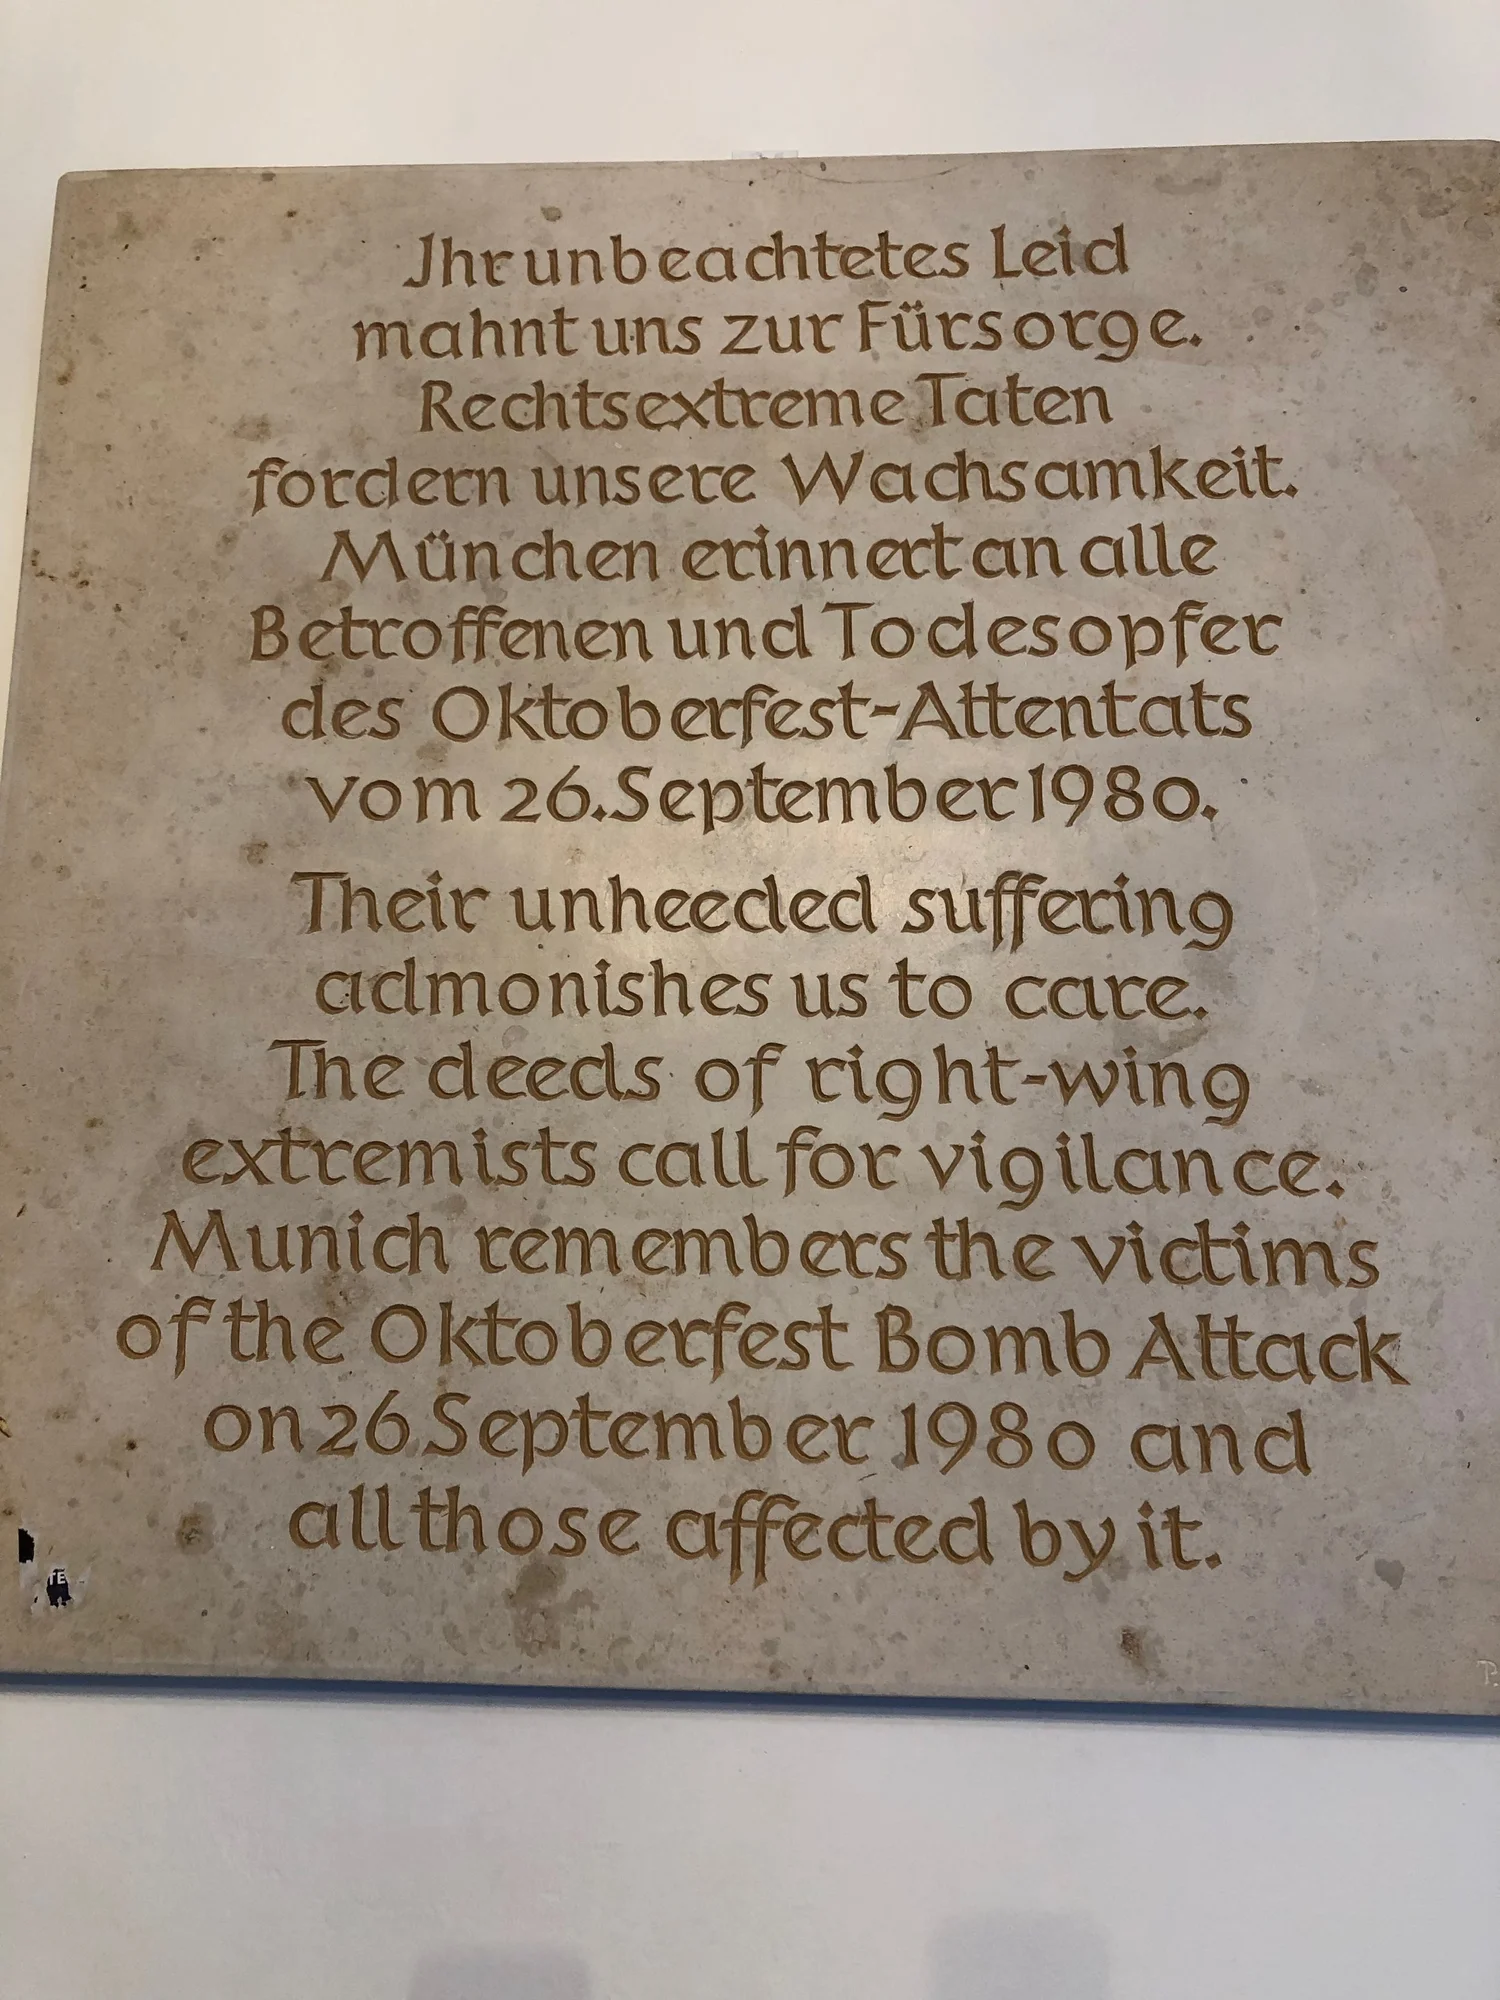 Jhr unbeachtetes Leid
mahnt uns zur Fürsorge.
Rechtsextreme Taten
fordern unsere Wachsamkeit.
München erinnert an alle
Betroffenen und Todesopfer
des Oktoberfest-Attentats
vom 26. September 1980.
Their unheeded suffering
admonishes us to care.
The deeds of right-wing
extremists call for vigilance.
Munich remembers the victims
of the Oktoberfest Bomb Attack
on 26 September 1980 and
all those affected by it.